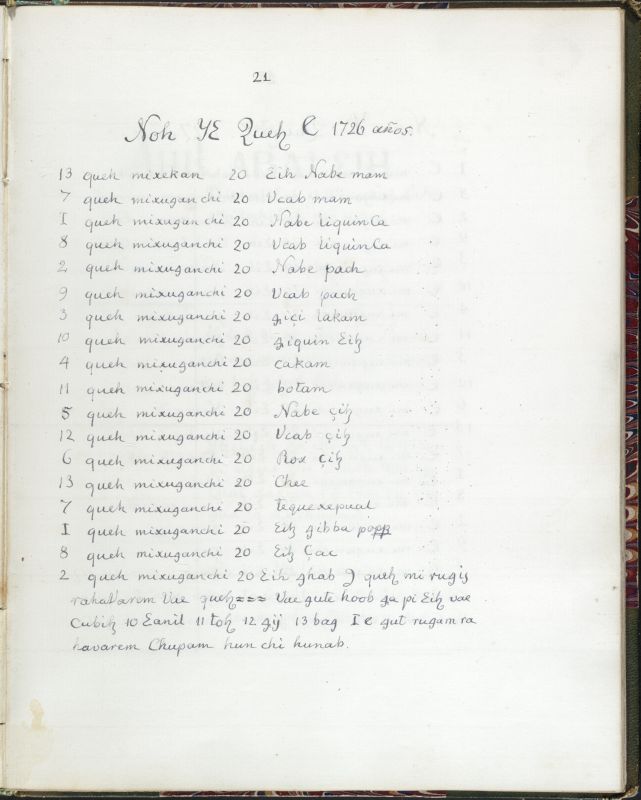 21
Noh YE Queh C 1726 años.
13 queh mixekan 20 Eih Nabe mam
7 queh mixuganchi 20 Ucab mam
I queh mixuganchi 20 Nabe liquinCa
8 queh mixuganchi 20 Ucab liquinCa
2 queh mixuganchi 20 Nabe pach
9 queh mixuganchi 20 Ucab pach
3 queh mixuganchi 20 giçi lakam
10 queh mixuganchi 20 giquin Eiꜧ
4 queh mixuganchi 20 cakam
11 queh mixuganchi 20 botam
5 queh mixuganchi 20 Nabe çiꜧ
12 queh mixuganchi 20 Ucab çiꜧ
6 queh mixuganchi 20 Rox çiꜧ
13 queh mixuganchi 20 Chee
7 queh mixuganchi 20 tequexepual
I queh mixuganchi 20 Eiꜧ gibba
8 queh mixuganchi 20 Eiꜧ Çac
2 queh mixuganchi 20 Eih ghab queꜧ mi rugis
Vae queꜧ≈≈≈ Vae gute hoob ga pi Eiꜧ vae
Cubiꜧ 10 Eanil 11 toꜧ 12 gij 13 bag I e gut rugam ra
havarem Chupam hun chi hunab.